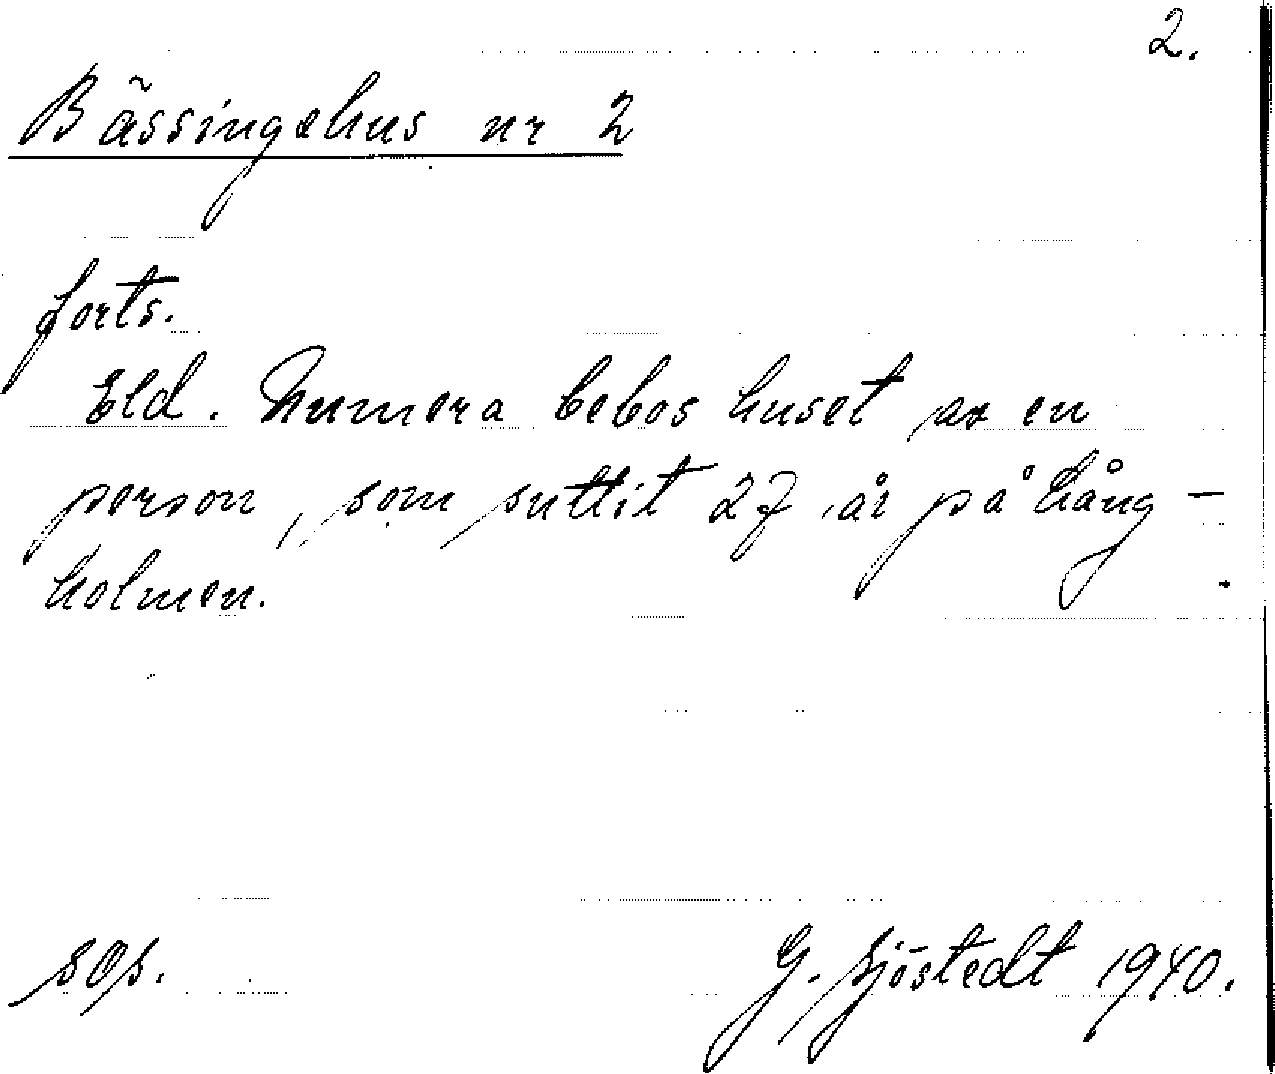 2.
Bässingehus nr 2
forts.
Eld. Numera bebos huset av en
person, som suttit 27 år på Lång-
holmen.
sǫs.
G. Sjöstedt 1940.